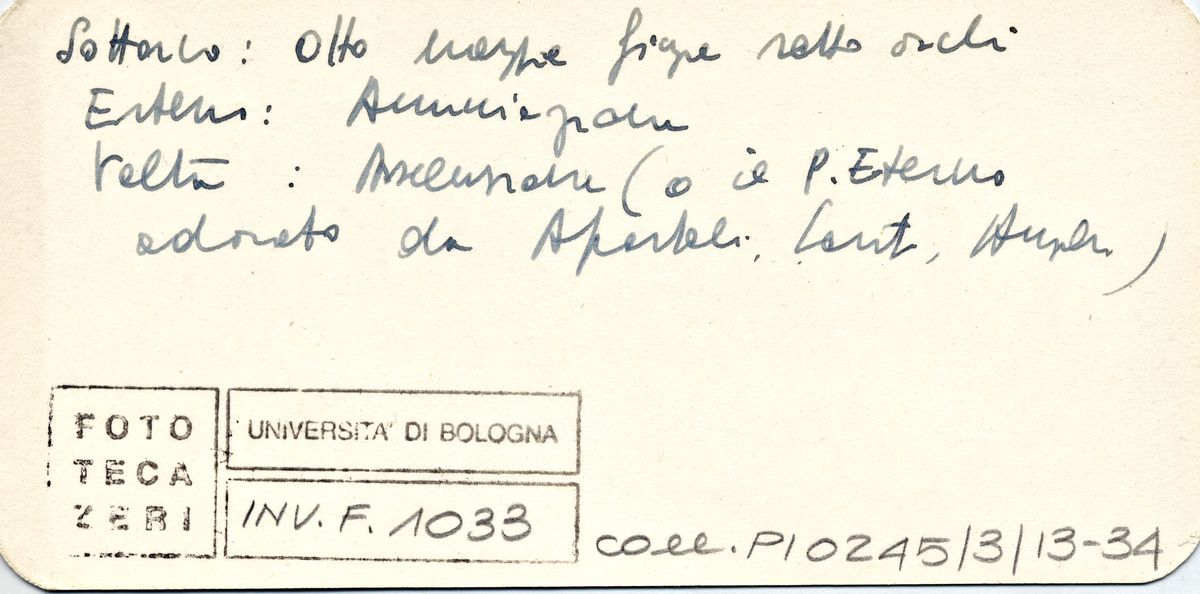 Sottarco: Otto mezze figure sotto archi
Esterno: Annunciazione
Volta : Ascensione (o il P. Eterno
adorato da Apostoli, Santi, Angeli)
FOTO
TECA
ZERI
UNIVERSITA' DI BOLOGNA
INV. F. 1033
coll. PI 0245/3/13-34